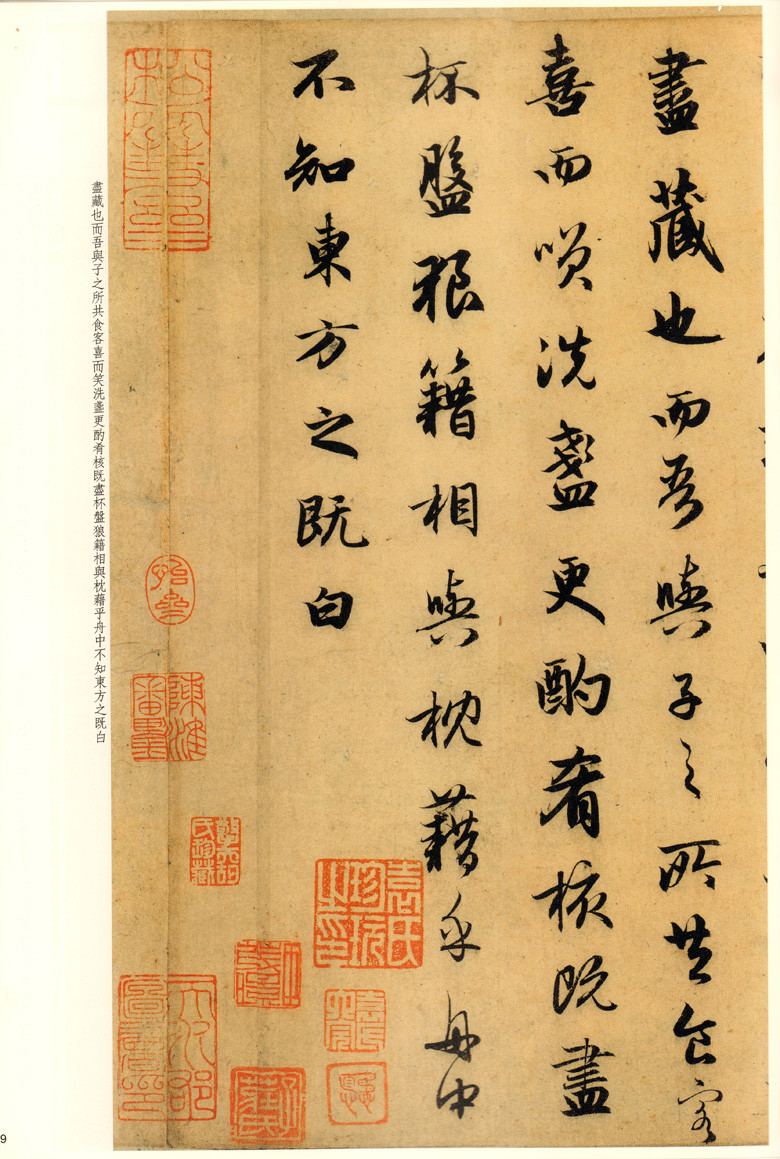 盡藏也而吾與子之所共食客
喜而咲洗盞更酌肴核既盡
杯盤狼籍相與枕藉乎舟中
不知東方之既白
袁氏珍玩之印
陳淮審墨
盡藏也而吾與子之所共食客喜而笑洗盞更酌肴核既盡杯盤狼籍相與枕藉乎舟中不知東方之既白
9